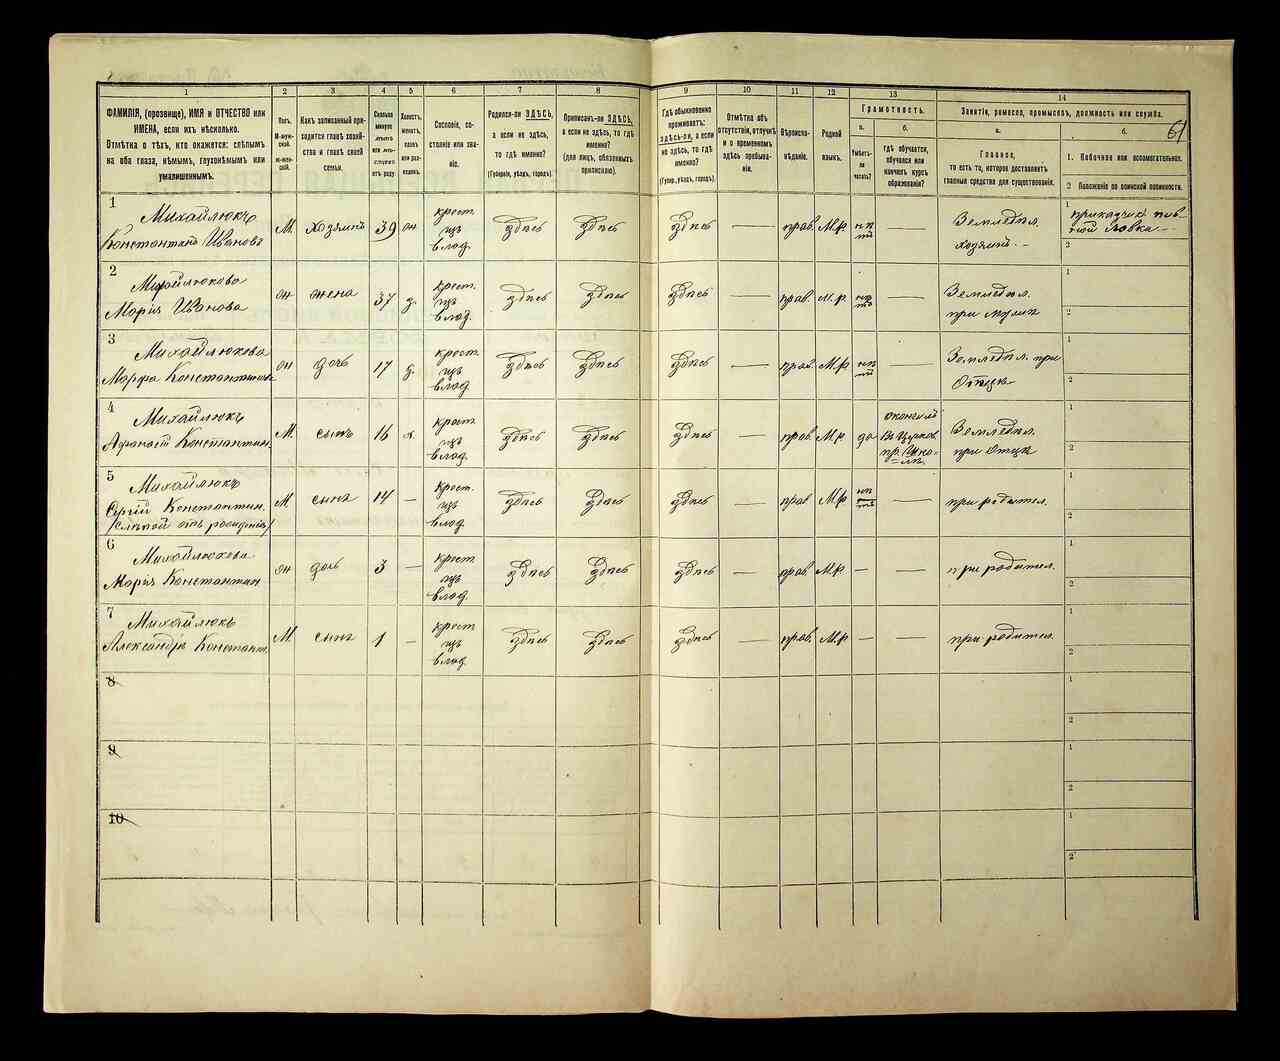 1
2
3
4
5
6
7
8
9
10
11
12
13
14
ФАМИЛІЯ, (прозвище), ИМЯ и ОТЧЕСТВО или
ИМЕНА, если ихъ нѣсколько.
Отмѣтка о тѣхъ, кто окажется: слѣпымъ
на оба глаза, нѣмымъ, глухонѣмымъ или
умалишеннымъ.
Полъ.
М-муж-
ской.
ж-жен-
скій.
Какъ записанный при-
ходится главѣ хозяй-
ства и главѣ своей
семьи.
Сколько
минуло
лѣтъ
или мѣс-
яцевъ
отъ роду
Холостъ,
женатъ,
вдовъ
или раз-
веденъ.
Сословіе, со-
стояніе или зва-
ніе.
Родился-ли ЗДѢСЬ,
а если не здѣсь,
то гдѣ именно?
(Губернія, уѣздъ, городъ).
Приписанъ-ли ЗДѢСЬ,
а если не здѣсь, то гдѣ
именно?
(для лицъ, обязанныхъ
припискою).
Гдѣ обыкновенно
проживаетъ:
здѣсь-ли, а если
не здѣсь, то гдѣ
именно?
(Губер., уѣздъ, городъ).
Отмѣтка объ
отсутствіи, отлучкѣ
и о временномъ
здѣсь пребыва-
ніи.
Вѣроиспо-
вѣданіе.
Родной
языкъ.
Грамотность.
а.
Умѣетъ-
ли
читать?
б.
гдѣ обучается,
обучался или
кончилъ курсъ
образованія?
Занятія, ремесло, промыселъ, должность или служба.
а.
Главное,
то есть то, которое доставляетъ
главныя средства для существованія.
б.
61
1. Побочное или вспомогательное.
2 Положеніе по воинской повинности.
1
Михайлюкъ
Константинъ Ивановъ
М
хозяинъ
39
он
крест.
изъ
влад.
здѣсь
здѣсь
здѣсь
—
прав.
М.р.
нѣтъ
—
Земледѣл.
хозяинъ
1
приказчикъ
2
2
Михайлюкова
Марія Иванова
он
жена
37
з.
крест.
изъ
влад.
здѣсь
здѣсь
здѣсь
—
прав.
М.р.
нѣтъ
—
Земледѣл.
при мужѣ
1
2
3
Михайлюкова
Марфа Константинова
он
дочь
17
д.
крест.
изъ
влад.
здѣсь
здѣсь
здѣсь
—
прав.
М.р.
нѣтъ
—
Земледѣл. при
Отцѣ
1
2
4
Михайлюкъ
Афанасій Константин.
М.
сынъ
16
х.
крест.
изъ
влад.
здѣсь
здѣсь
здѣсь
—
прав.
М.р.
да
окончилъ
въ церков.
пр. Шко-
лѣ.
Земледѣл.
при Отцѣ
1
2
5
Михайлюкъ
Сергій Константин.
/слѣпой отъ рожденія/
М
сынъ
14
—
крест.
изъ
влад.
здѣсь
здѣсь
здѣсь
—
прав
М.р.
нѣтъ
—
при родител.
1
2
6
Михайлюкова
Марія Константин
он
дочь
3
—
крест.
изъ
влад.
здѣсь
здѣсь
здѣсь
—
прав.
М.р.
—
—
при родител.
1
2
7
Михайлюкъ
Александръ Констант.
М.
сынъ
1
—
крест
изъ
влад.
здѣсь
здѣсь
здѣсь
—
прав.
М.р.
—
—
при родител.
1
2
8
1
2
9
1
2
10
1
2